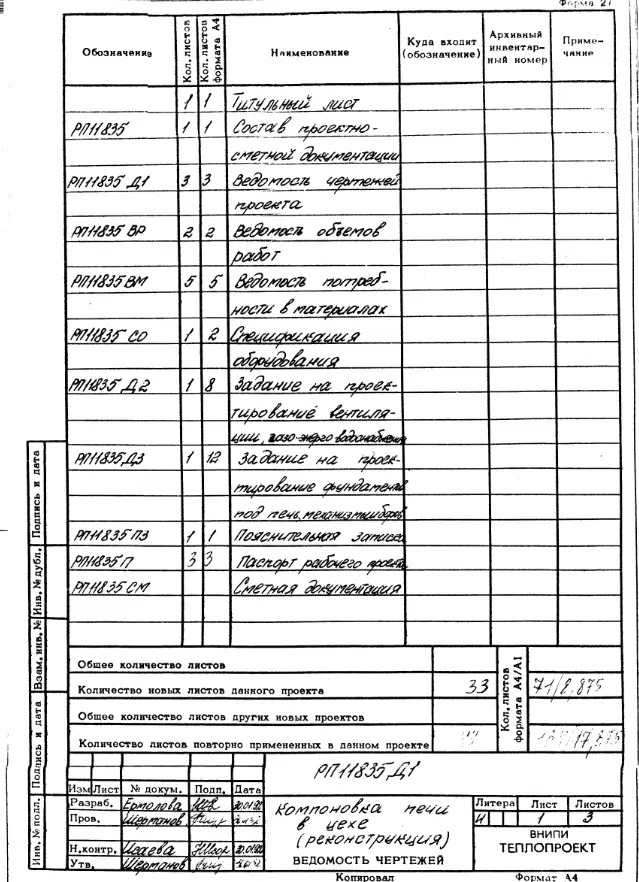 Форма 27
Обозначение Кол. листов Кол. листов формата А4 Наименование Куда входит (обозначение) Архивный инвентарный номер Примечание
1 1 Титульный лист
РП11835 1 1 Состав проектно-
сметной документации
РП11835 Д1 3 3 Ведомость чертежей
проекта
РП11835 ВР 2 2 Ведомость объемов
работ
РП11835 ВМ 5 5 Ведомость потреб-
ности в материалах
РП11835 СО 1 2 Спецификация
оборудования
РП11835 Д2 1 8 Задание на проек-
тирование вентиля-
ции,
РП11835 Д3 1 12 Задание на проек-
тирование фундаментов
под печь,
РП11835 ПЗ 1 1 Пояснительная записка
РП11835 П 3 3 Паспорт рабочего проекта
РП11835 СМ Сметная документация
Общее количество листов
Количество новых листов данного проекта 33 Кол. листов формата А4/А1 71/8,875
Общее количество листов других новых проектов
Количество листов повторно примененных в данном проекте
РП11835 Д1
Изм Лист № докум. Подп. Дата
Разраб. Ермолова
Пров. Шерманов
Н.контр. Исаева
Утв. Шерманов
Компоновка печи
в цехе
(реконструкция)
ВЕДОМОСТЬ ЧЕРТЕЖЕЙ
Литера Лист Листов
И 1 3
ВНИПИ
ТЕПЛОПРОЕКТ
Копировал Формат А4
Подпись и дата
Инв. № дубл.
Взам. инв. №
Подпись и дата
Инв. № подл.